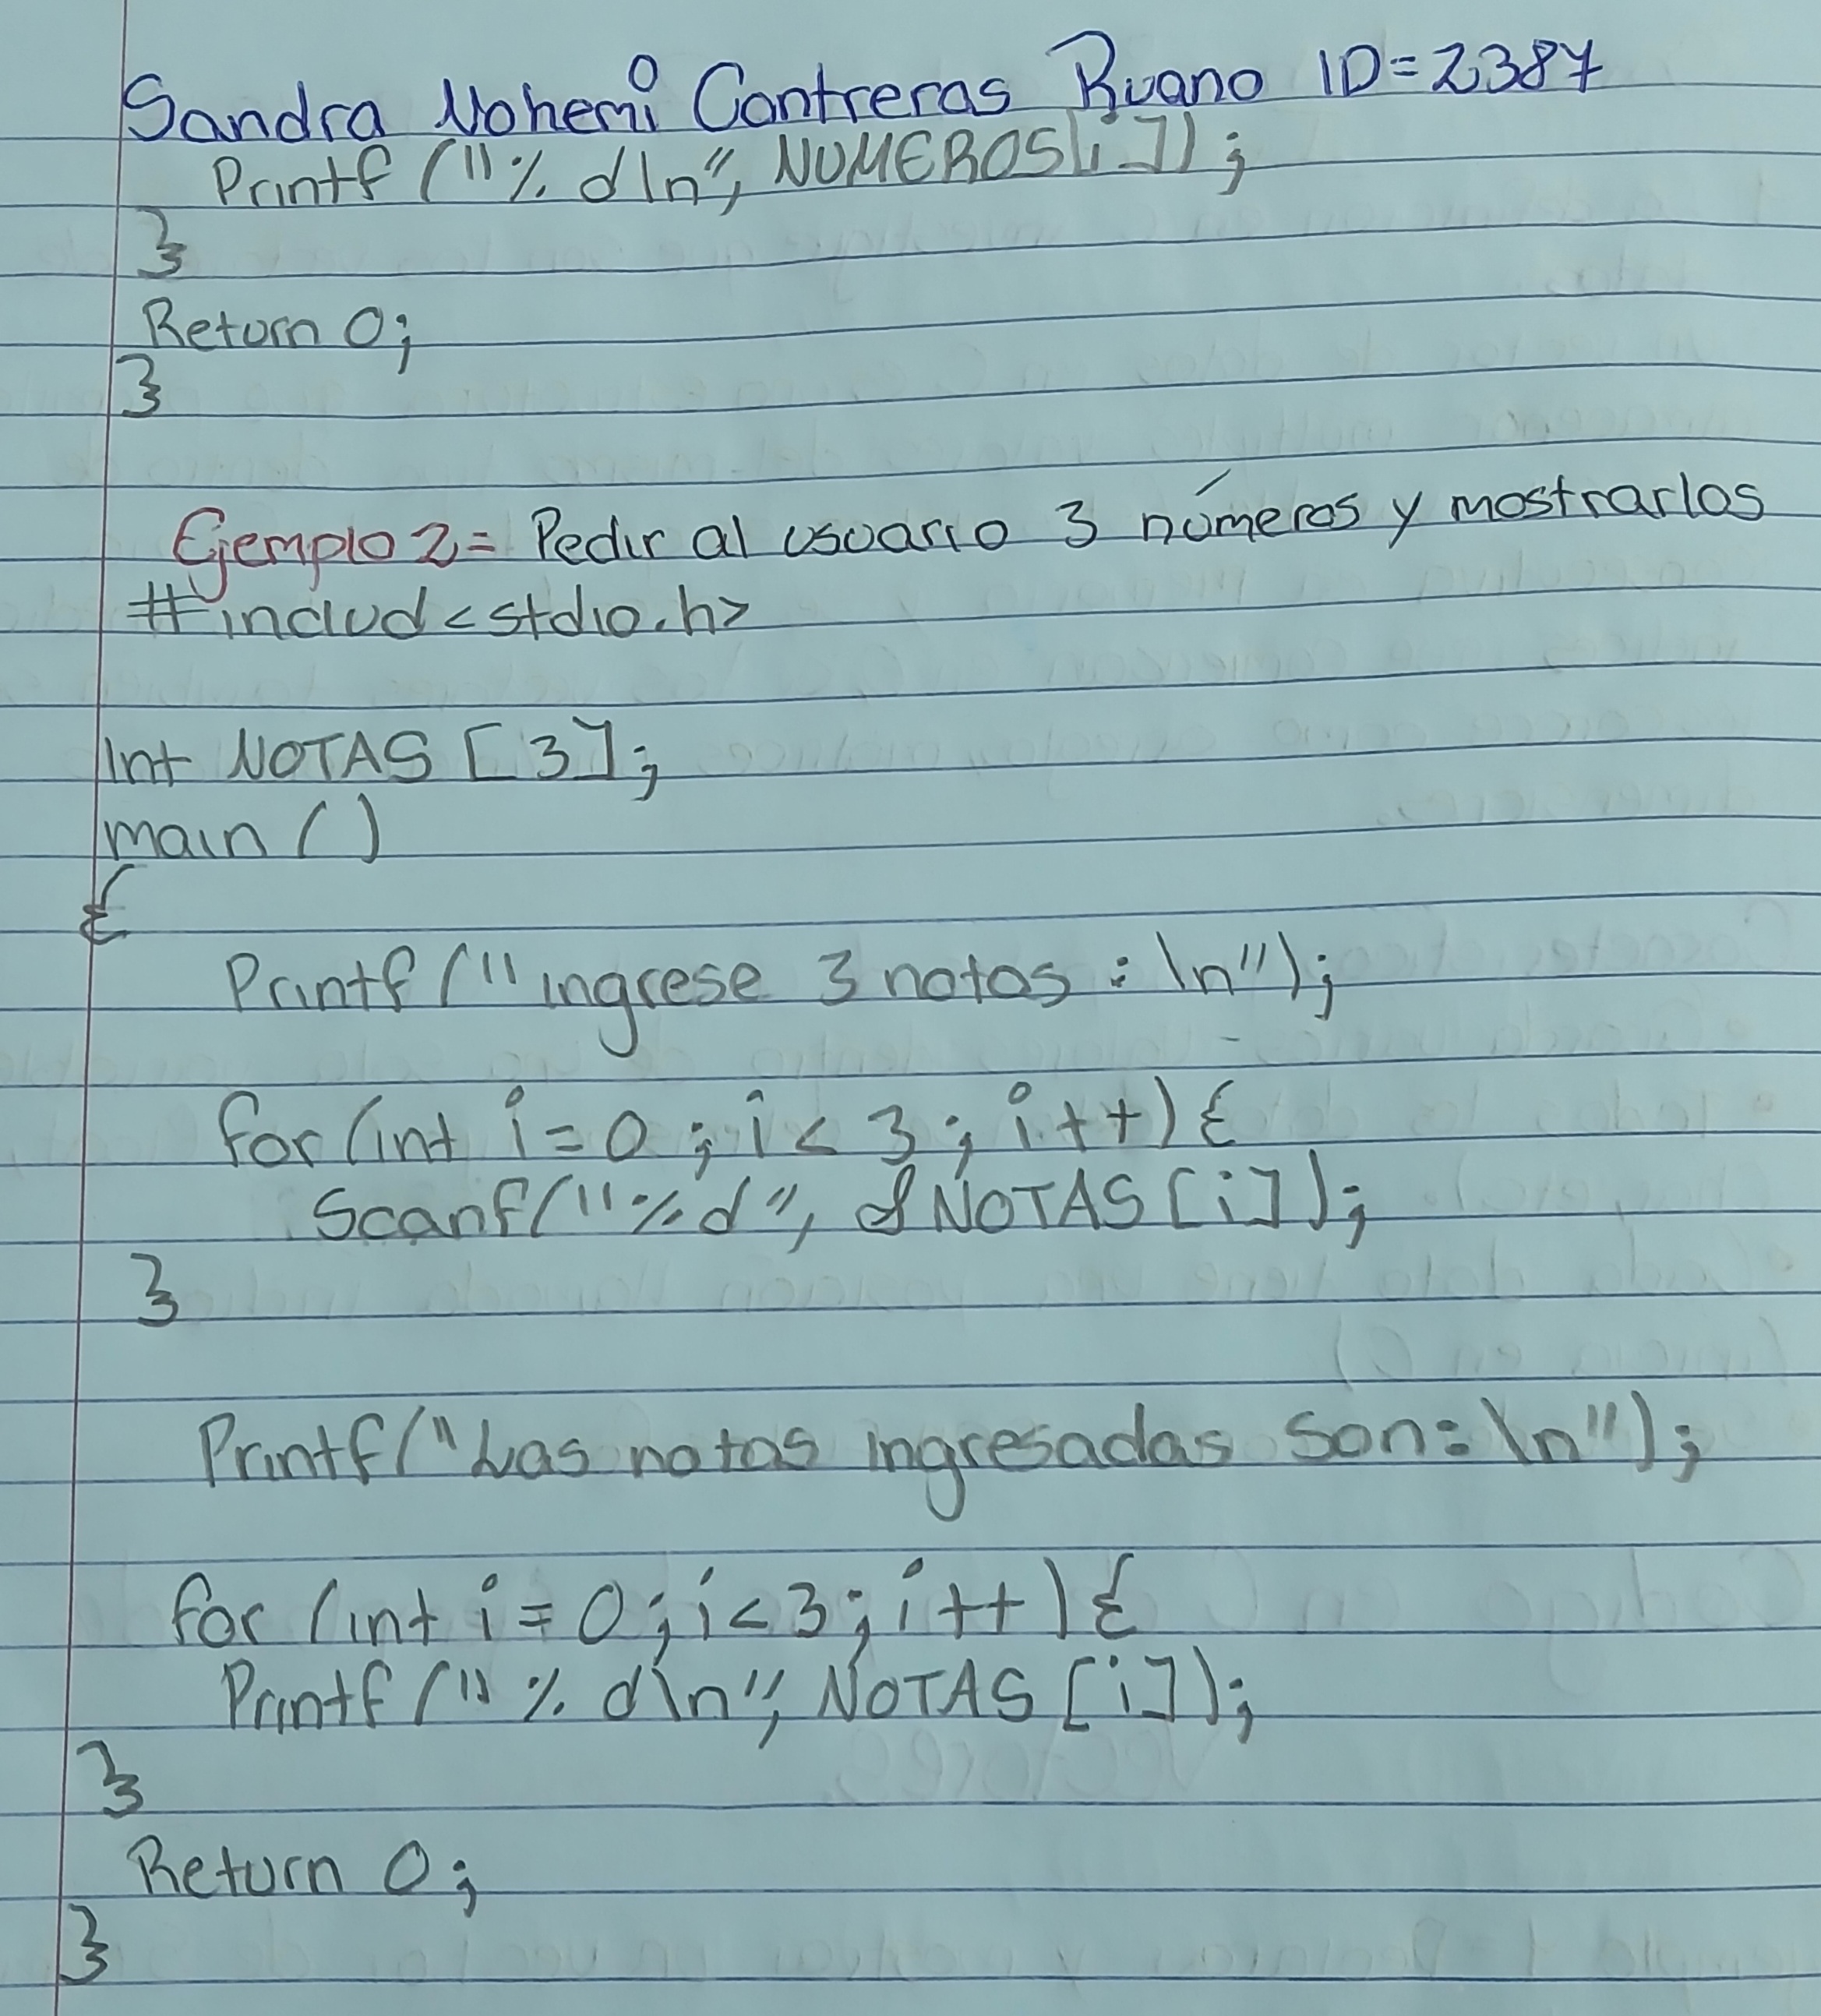 Sandra Nohemi Contreras Ruano ID=2387
Printf ("% d\n", NUMEROS[i]);
}
Return 0;
}
Ejemplo 2= Pedir al usuario 3 números y mostrarlos
#includ<stdio.h>
Int NOTAS [3];
main ()
{
Printf ("ingrese 3 notas : \n");
for (int i = 0 ; i < 3 ; i++) {
Scanf("%d", &NOTAS [i]);
}
Printf("Las notas ingresadas son: \n");
for (int i = 0; i<3; i++) {
Printf ("% d\n", NOTAS [i]);
}
Return 0;
}